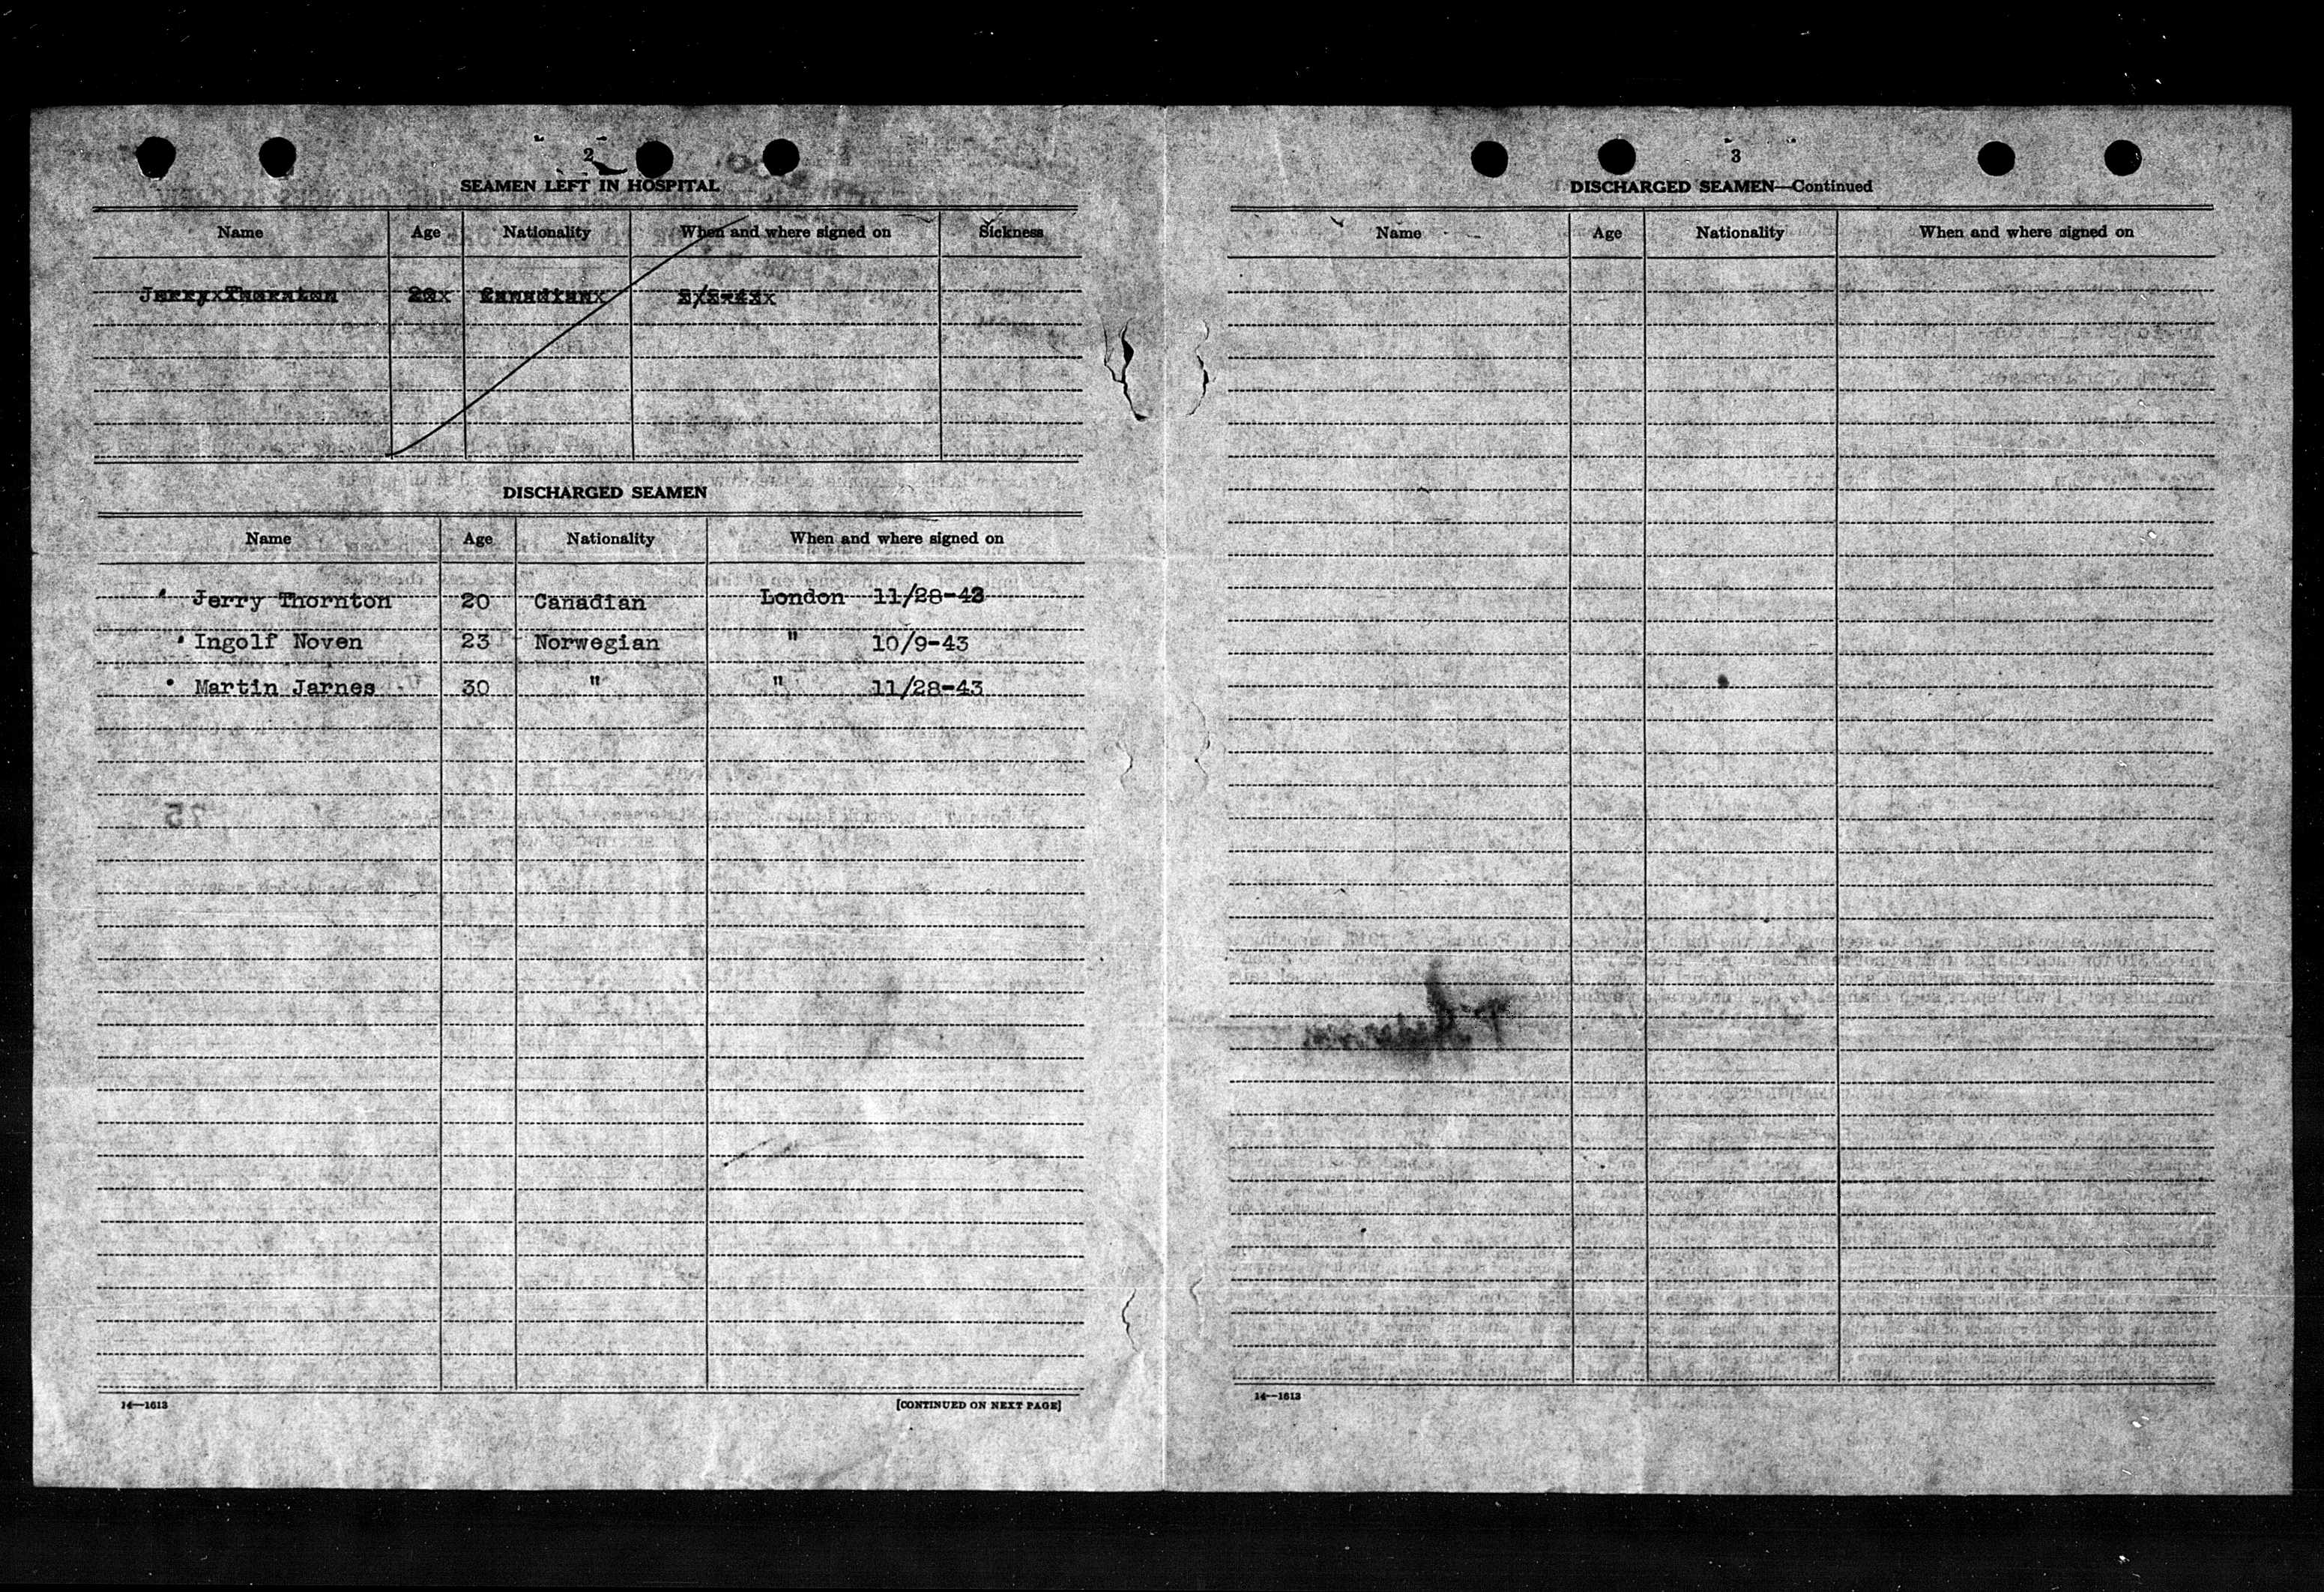 2
SEAMEN LEFT IN HOSPITAL
Name Age Nationality When and where signed on Sickness
Jerry Thornton 20 Canadian
DISCHARGED SEAMEN
Name Age Nationality When and where signed on
Jerry Thornton 20 Canadian London 11/28-43
Ingolf Noven 23 Norwegian " 10/9-43
Martin Jarnes 30 " " 11/28-43
14—1613 [CONTINUED ON NEXT PAGE]
3
DISCHARGED SEAMEN—Continued
Name Age Nationality When and where signed on
14—1613